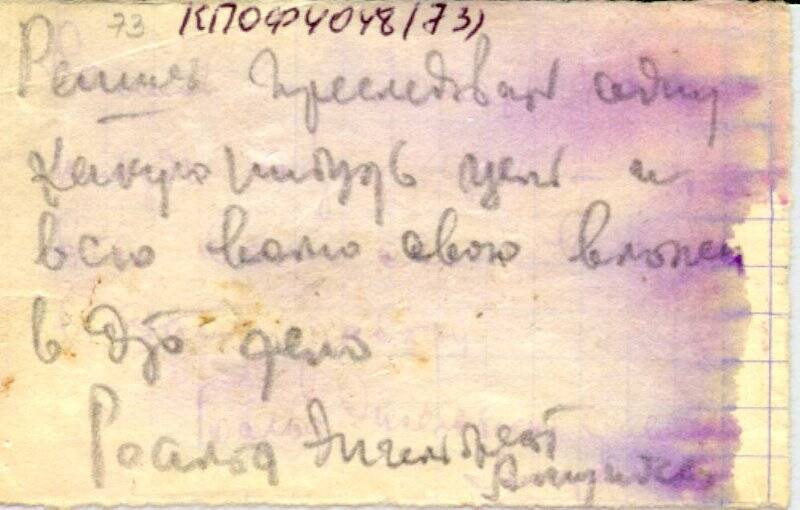 73 КПОФ4048(73)
Решил преследоват одну
какую нибудь цель и
всю волю свою вложи
в это дело
Роальд Энгельбрет
Амундсен